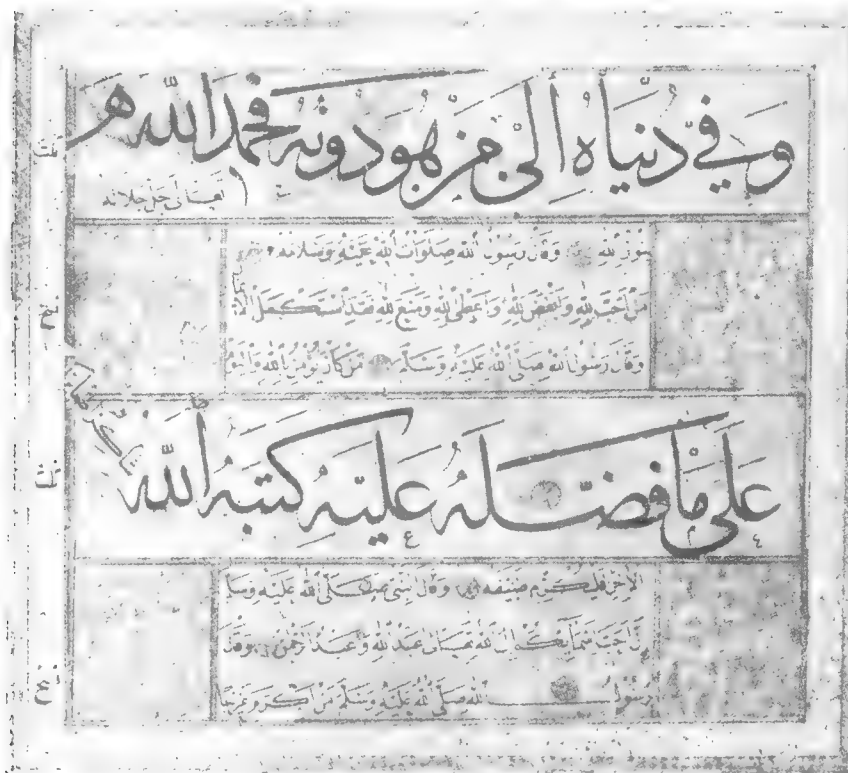 وَفِي دُنْيَاهُ إِلَى مَنْ هُوَ دُونَهُ فَحَمِدَ اللّٰهَ
تعالى جل جلاله
وَقَالَ رَسُولُ اللهِ صَلَوَاتُ اللهِ عَلَيْهِ وَسَلَامُهُ
مَنْ اَحَبَّ لِلّٰهِ وَاَبْغَضَ لِلّٰهِ وَاَعْطٰى لِلّٰهِ وَمَنَعَ لِلّٰهِ فَقَدِ اسْتَكْمَلَ
وَقَالَ رَسُولُ اللهِ صَلَّى اللهُ عَلَيْهِ وَسَلَّمَ مَنْ كَانَ يُؤْمِنُ بِاللهِ وَالْيَوْ
عَلَى مَا فَضَّلَهُ عَلَيْهِ كَتَبَهُ اللّٰهُ
الْاٰخِرِ فَلْيُكْرِمْ ضَيْفَهُ وَقَالَ النَّبِيُّ صَلَّى اللهُ عَلَيْهِ وَسَلَّ
اِنَّ اَحَبَّ اِلَى اللهِ تَعَالٰى عَبْدُ اللهِ وَعَبْدُ الرَّحْمٰنِ وَقَالَ
رَسُولُ اللهِ صَلَّى اللهُ عَلَيْهِ وَسَلَّمَ مَنْ
ثلث
نسخ
ثلث
نسخ